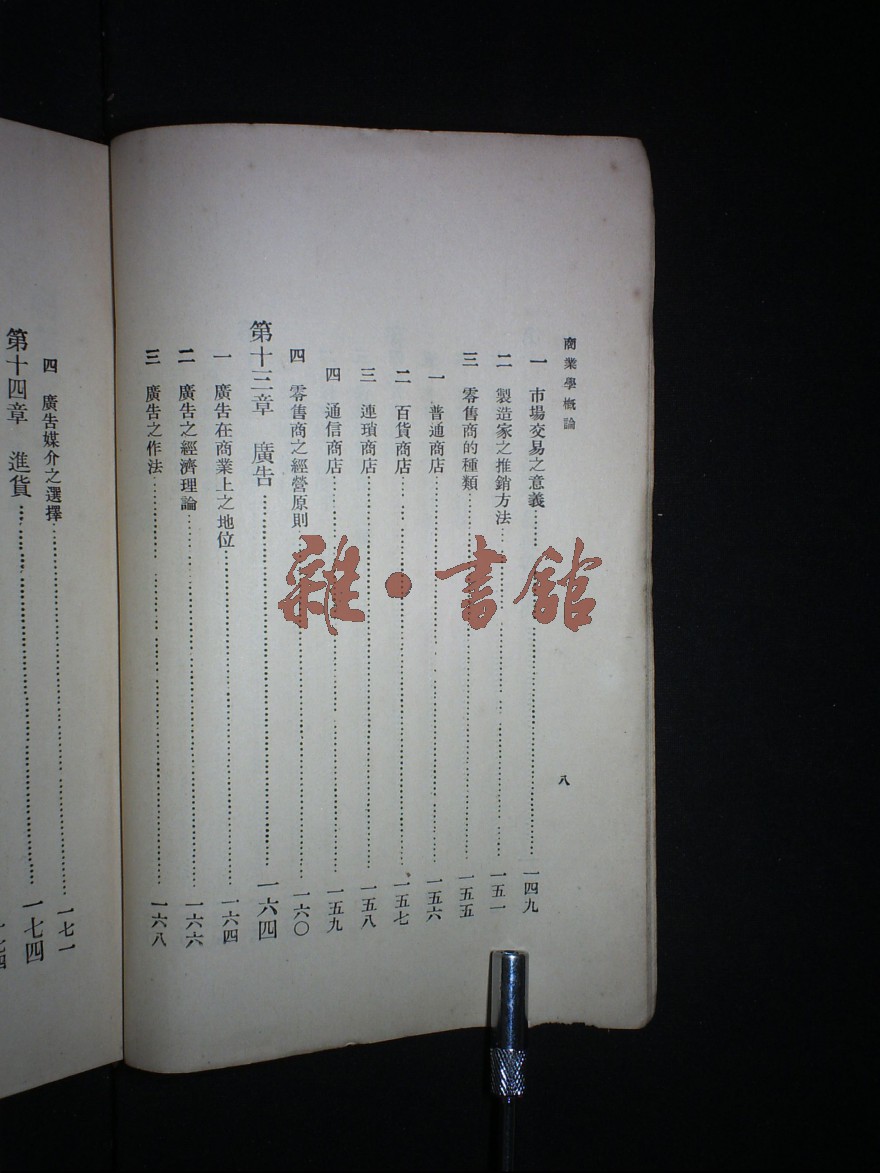 商業學概論
八
一 市場交易之意義 一四九
二 製造家之推銷方法 一五一
三 零售商的種類 一五五
一 普通商店 一五六
二 百貨商店 一五七
三 連瑣商店 一五八
四 通信商店 一五九
四 零售商之經營原則 一六〇
第十三章 廣告 一六四
一 廣告在商業上之地位 一六四
二 廣告之經濟理論 一六六
三 廣告之作法 一六八
四 廣告媒介之選擇 一七一
第十四章 進貨 一七四
雜·書館